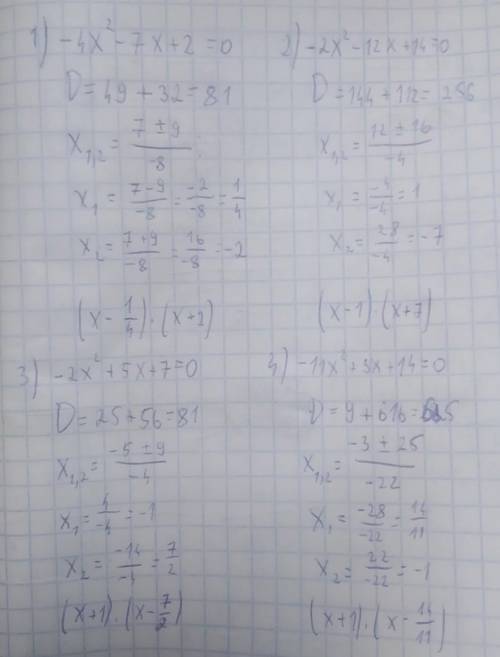 1) -4x² - 7x + 2 = 0
D = 49 + 32 = 81
x₁,₂ = (7 ± 9)/-8
x₁ = (7-9)/-8 = -2/-8 = 1/4
x₂ = (7+9)/-8 = 16/-8 = -2
(x - 1/4) · (x + 2)
2) -2x² - 12x + 14 = 0
D = 144 + 112 = 256
x₁,₂ = (12 ± 16)/-4
x₁ = -4/-4 = 1
x₂ = 28/-4 = -7
(x - 1) · (x + 7)
3) -2x² + 5x + 7 = 0
D = 25 + 56 = 81
x₁,₂ = (-5 ± 9)/-4
x₁ = 4/-4 = -1
x₂ = -14/-4 = 7/2
(x + 1) · (x - 7/2)
4) -11x² + 3x + 14 = 0
D = 9 + 616 = 625
x₁,₂ = (-3 ± 25)/-22
x₁ = -28/-22 = 14/11
x₂ = 22/-22 = -1
(x + 1) · (x - 14/11)